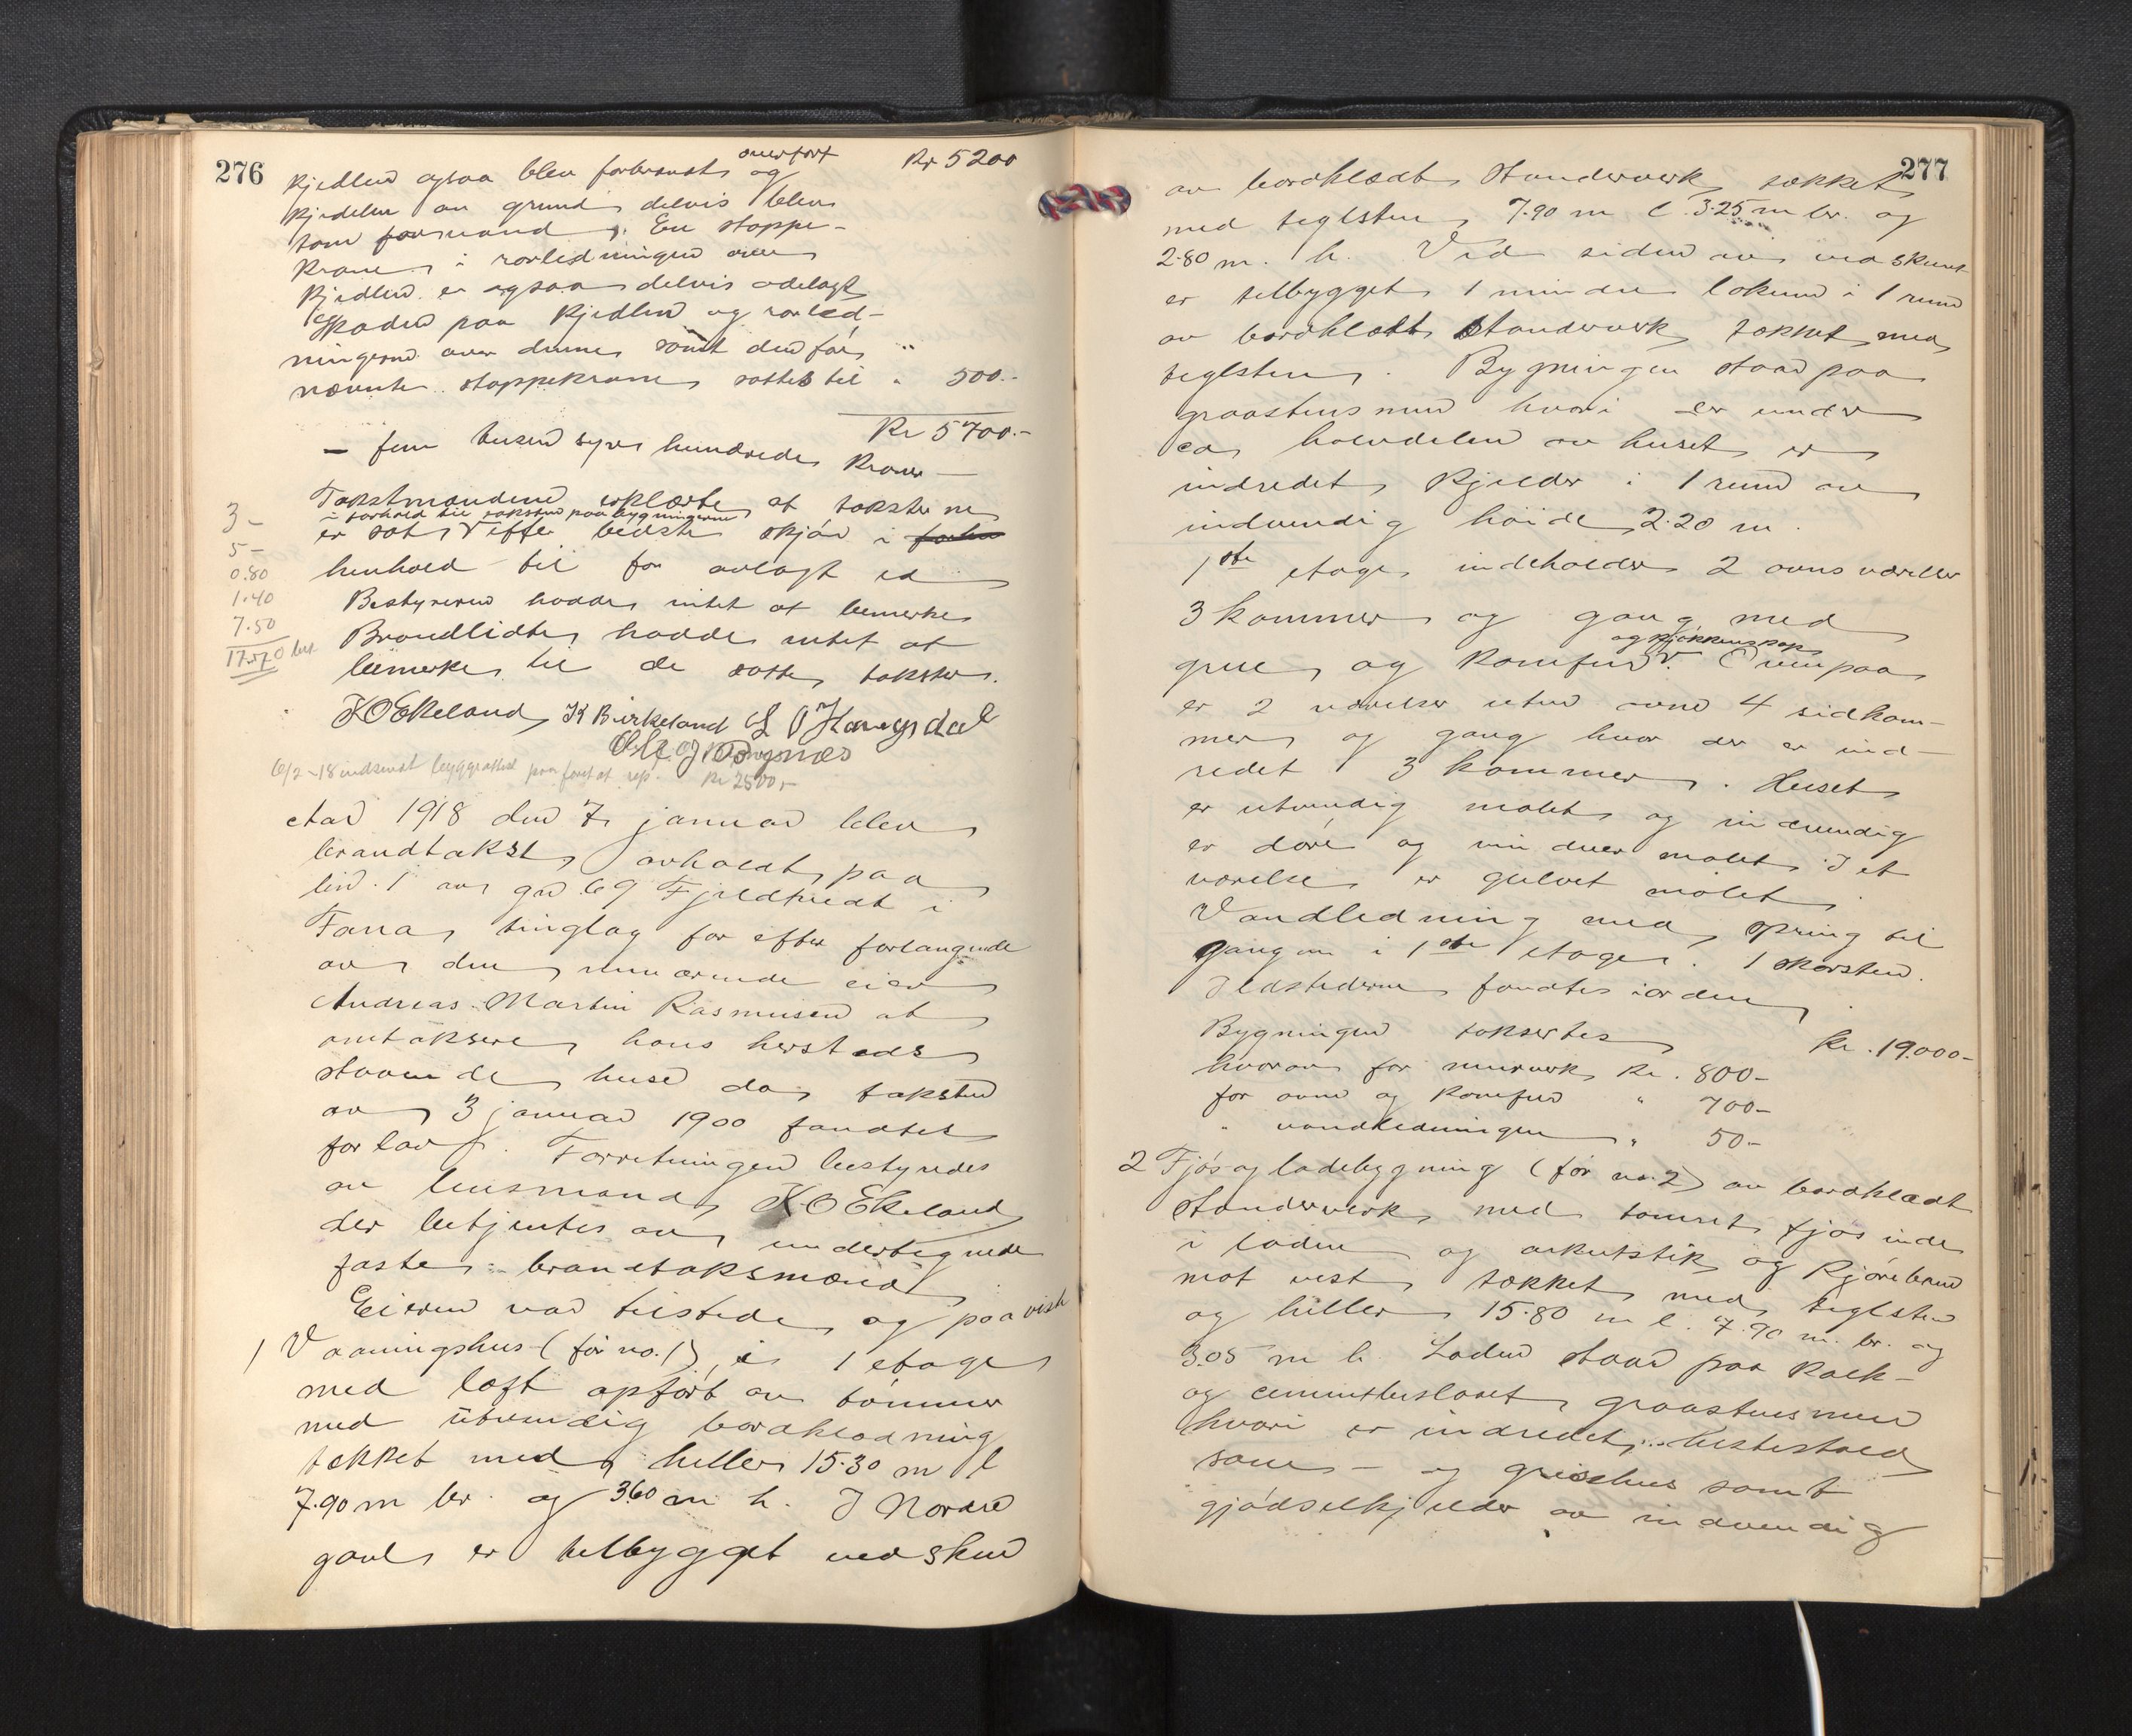 276
overført Kr 5200
kjedlen ogsaa blev forbrændt og
kjedelen av grund delvis blev
tom for vand. En stoppe-
krane i rørledningen over
kjedlen er ogsaa delvis ødelagt
Skaden paa kjedlen og rørled-
ningerne over denne samt den før
nævnte stoppekrane sættes til " 500.-
Kr 5700.-
- fem tusen syv hundrede kroner -
Takstmændene erklærte at taksterne
i forhold til taksten paa bygningerne
er sat efter bedste skjøn i
henhold til før avlagt ed
Bestyreren hadde intet at bemerke
Brandlidte hadde intet at
bemerke til de satte takster.
3-
5-
0.80
1.40
7.50
17.70 bet
K O Ekeland K Birkeland L O Haugsdal
6/2-18 indsendt byggeattest paa foretat rep. Kr 2500,-
Aar 1918 den 7 januar blev
brandtakst avholdt paa
bnr. 1 av gnr 69 Fjeldtvedt i
Fana tinglag for efter forlangende
av den nuværende eier
Andreas Martin Rasmussen at
omtaksere hans herstads
staaende huse da taksten
av 3 januar 1900 fandtes
for lav. Forretningen bestyredes
av lensmand K O Ekeland
der betjentes av undertegnede
faste brandtakstmænd
Eieren var tilstede og paaviste
1 Vaaningshus (før no. 1) i 1 etage
med loft opført av tømmer
med utvendig bordklædning
tækket med heller 15.30 m l
7.90 m br. og 3.60 m h. I Nordre
gavl er tilbygget vedskur
277
av bordklædt Standerverk tækket
med teglsten 7.90 m l 3.25 m br. og
2.80 m. h. Ved siden av vedskuret
er tilbygget 1 mindre lokum i 1 rum
av bordklædt Standerverk tækket med
teglsten. Bygningen staar paa
graastensmur hvori er under
ca halvdelen av huset er
indredet kjelder i 1 rum av
indvendig høide 2.20 m.
1ste etage indeholder 2 ovnsværelser
3 kammer og gang med
og kjøkkenskap
grue og komfur. Ovenpaa
er 2 værelser uten ovne 4 sidkam-
mer og gang hvor der er ind-
redet 3 kammer. Huset
er utvendig malet og indvendig
er døre og vinduer malet. I et
værelse er gulvet malet.
Vandledning med spring til
gangen i 1ste etage. 1 skorsten.
Ildstederne fandtes iorden
Bygningen takseres Kr. 19.000-
hvorav for murverk Kr. 800-
for ovne og komfur " 700-
" vandledningen " 50-
2 Fjøs og ladebygning (før no. 2) av bordklædt
Standerverk med tømret fjøs inde
i laden og arkutstik og kjørebru
mot vest tækket med teglsten
og heller 15.80 m l. 7.90 m. br. og
3.05 m h. Laden staar paa kalk-
og cementbeslaaet graastensmur
hvori er indredet hestestald
saue- og grisehus samt
gjødselkjelder av indvendig